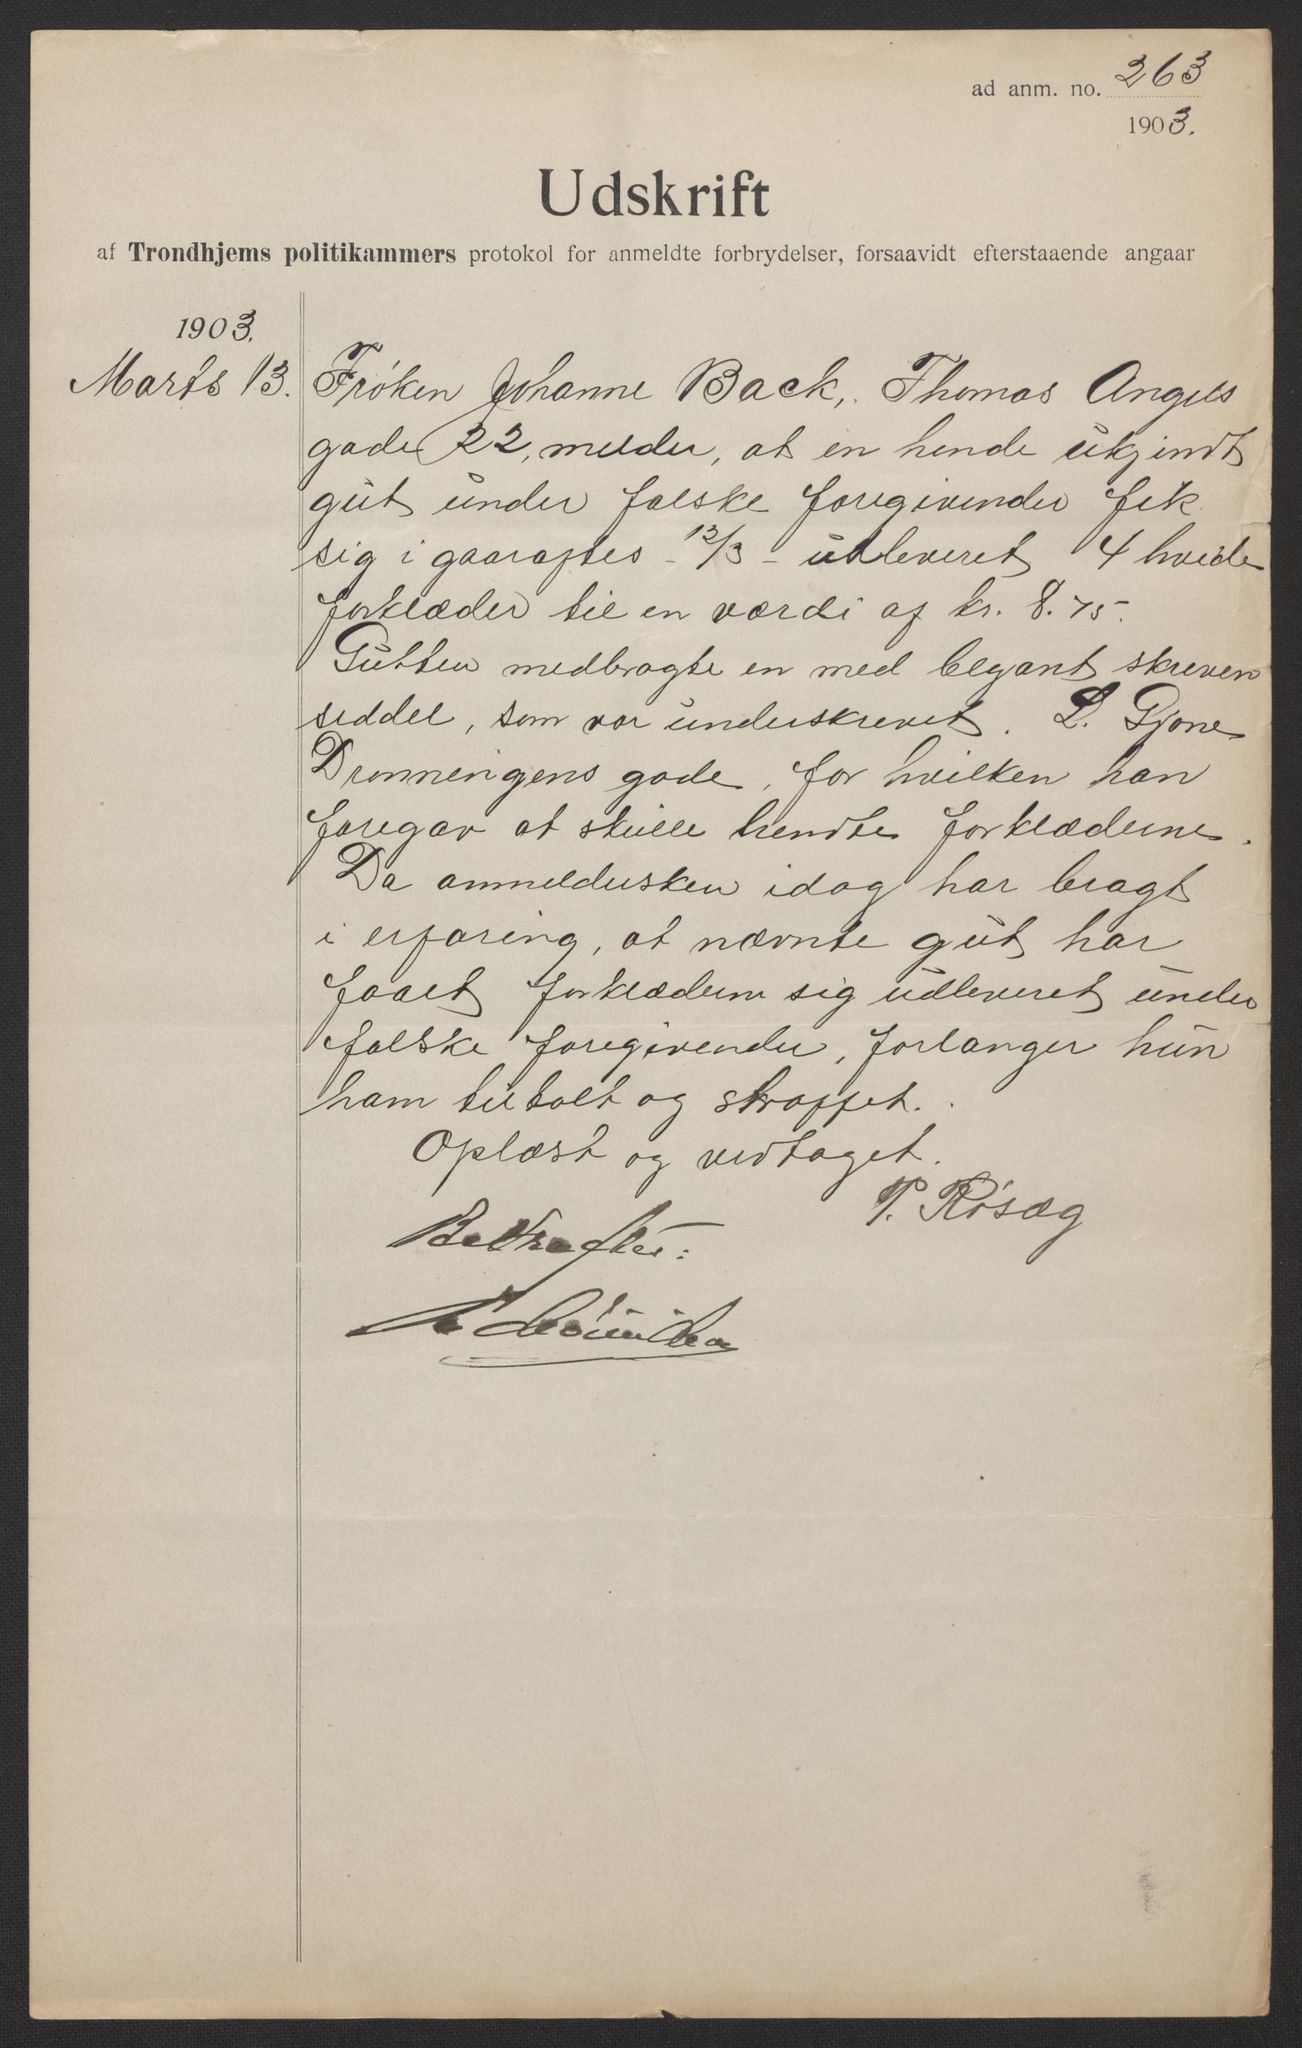 ad anm. no. 263
1903.
Udskrift
af Trondhjems politikammers protokol for anmeldte forbrydelser, forsaavidt efterstaaende angaar
1903.
Marts 13. Frøken Johanne Back, Thomas Angels
gade 22, melder, at en hende ukjendt
gut under falske foregivender fik
sig i gaaraftes - 12/3 - udleveret 4 hvide
forklæder til en værdi af kr. 8.75.
Gutten medbragte en med blyant skreven
seddel, som var underskrevet. L. Gjone
Dronningens gade, for hvilken han
foregav at skulle hendte forklæderne.
Da anmeldersken idag har bragt
i erfaring, at nævnte gut har
faaet forklæderne sig udleveret under
falske foregivender, forlanger hun
ham tiltalt og straffet.
Oplæst og vedtaget.
P. Røsæg
Bekræftes: